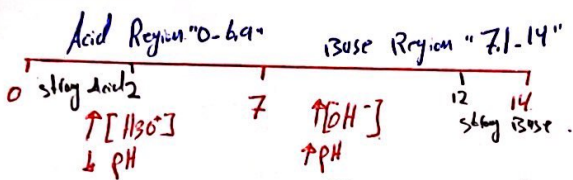 Acid Region "0-6.9" Base Region "7.1-14"
0 strong Acid 2 7 12 14
↑[H3O+] ↑[OH-] strong Base.
↓ pH ↑pH